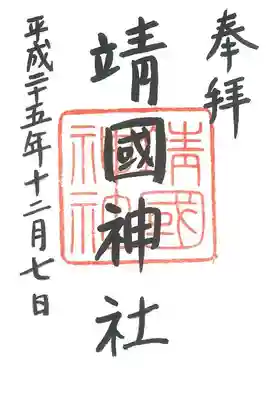 奉拝
靖國神社
靖國神社
平成二十五年十二月七日